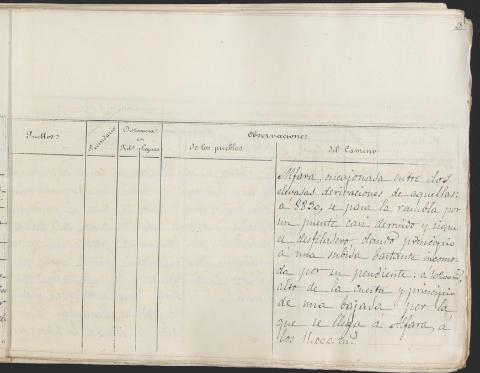 Pueblos
Vecindario
Distancia
en
Kils Leguas
Observaciones
de los pueblos
del Camino
Alfara, encajonada entre dos
elevadas derivaciones de aquellas:
á 8830, se pasa la rambla por
un puente casi derruido y sigue
el desfiladero, dando principio
á una subida bastante incomo-
da por su pendiente: a 10.200 m.
alto de la cuesta y principio
de una bajada por la
que se llega á Alfara, á
los 11.000 m.